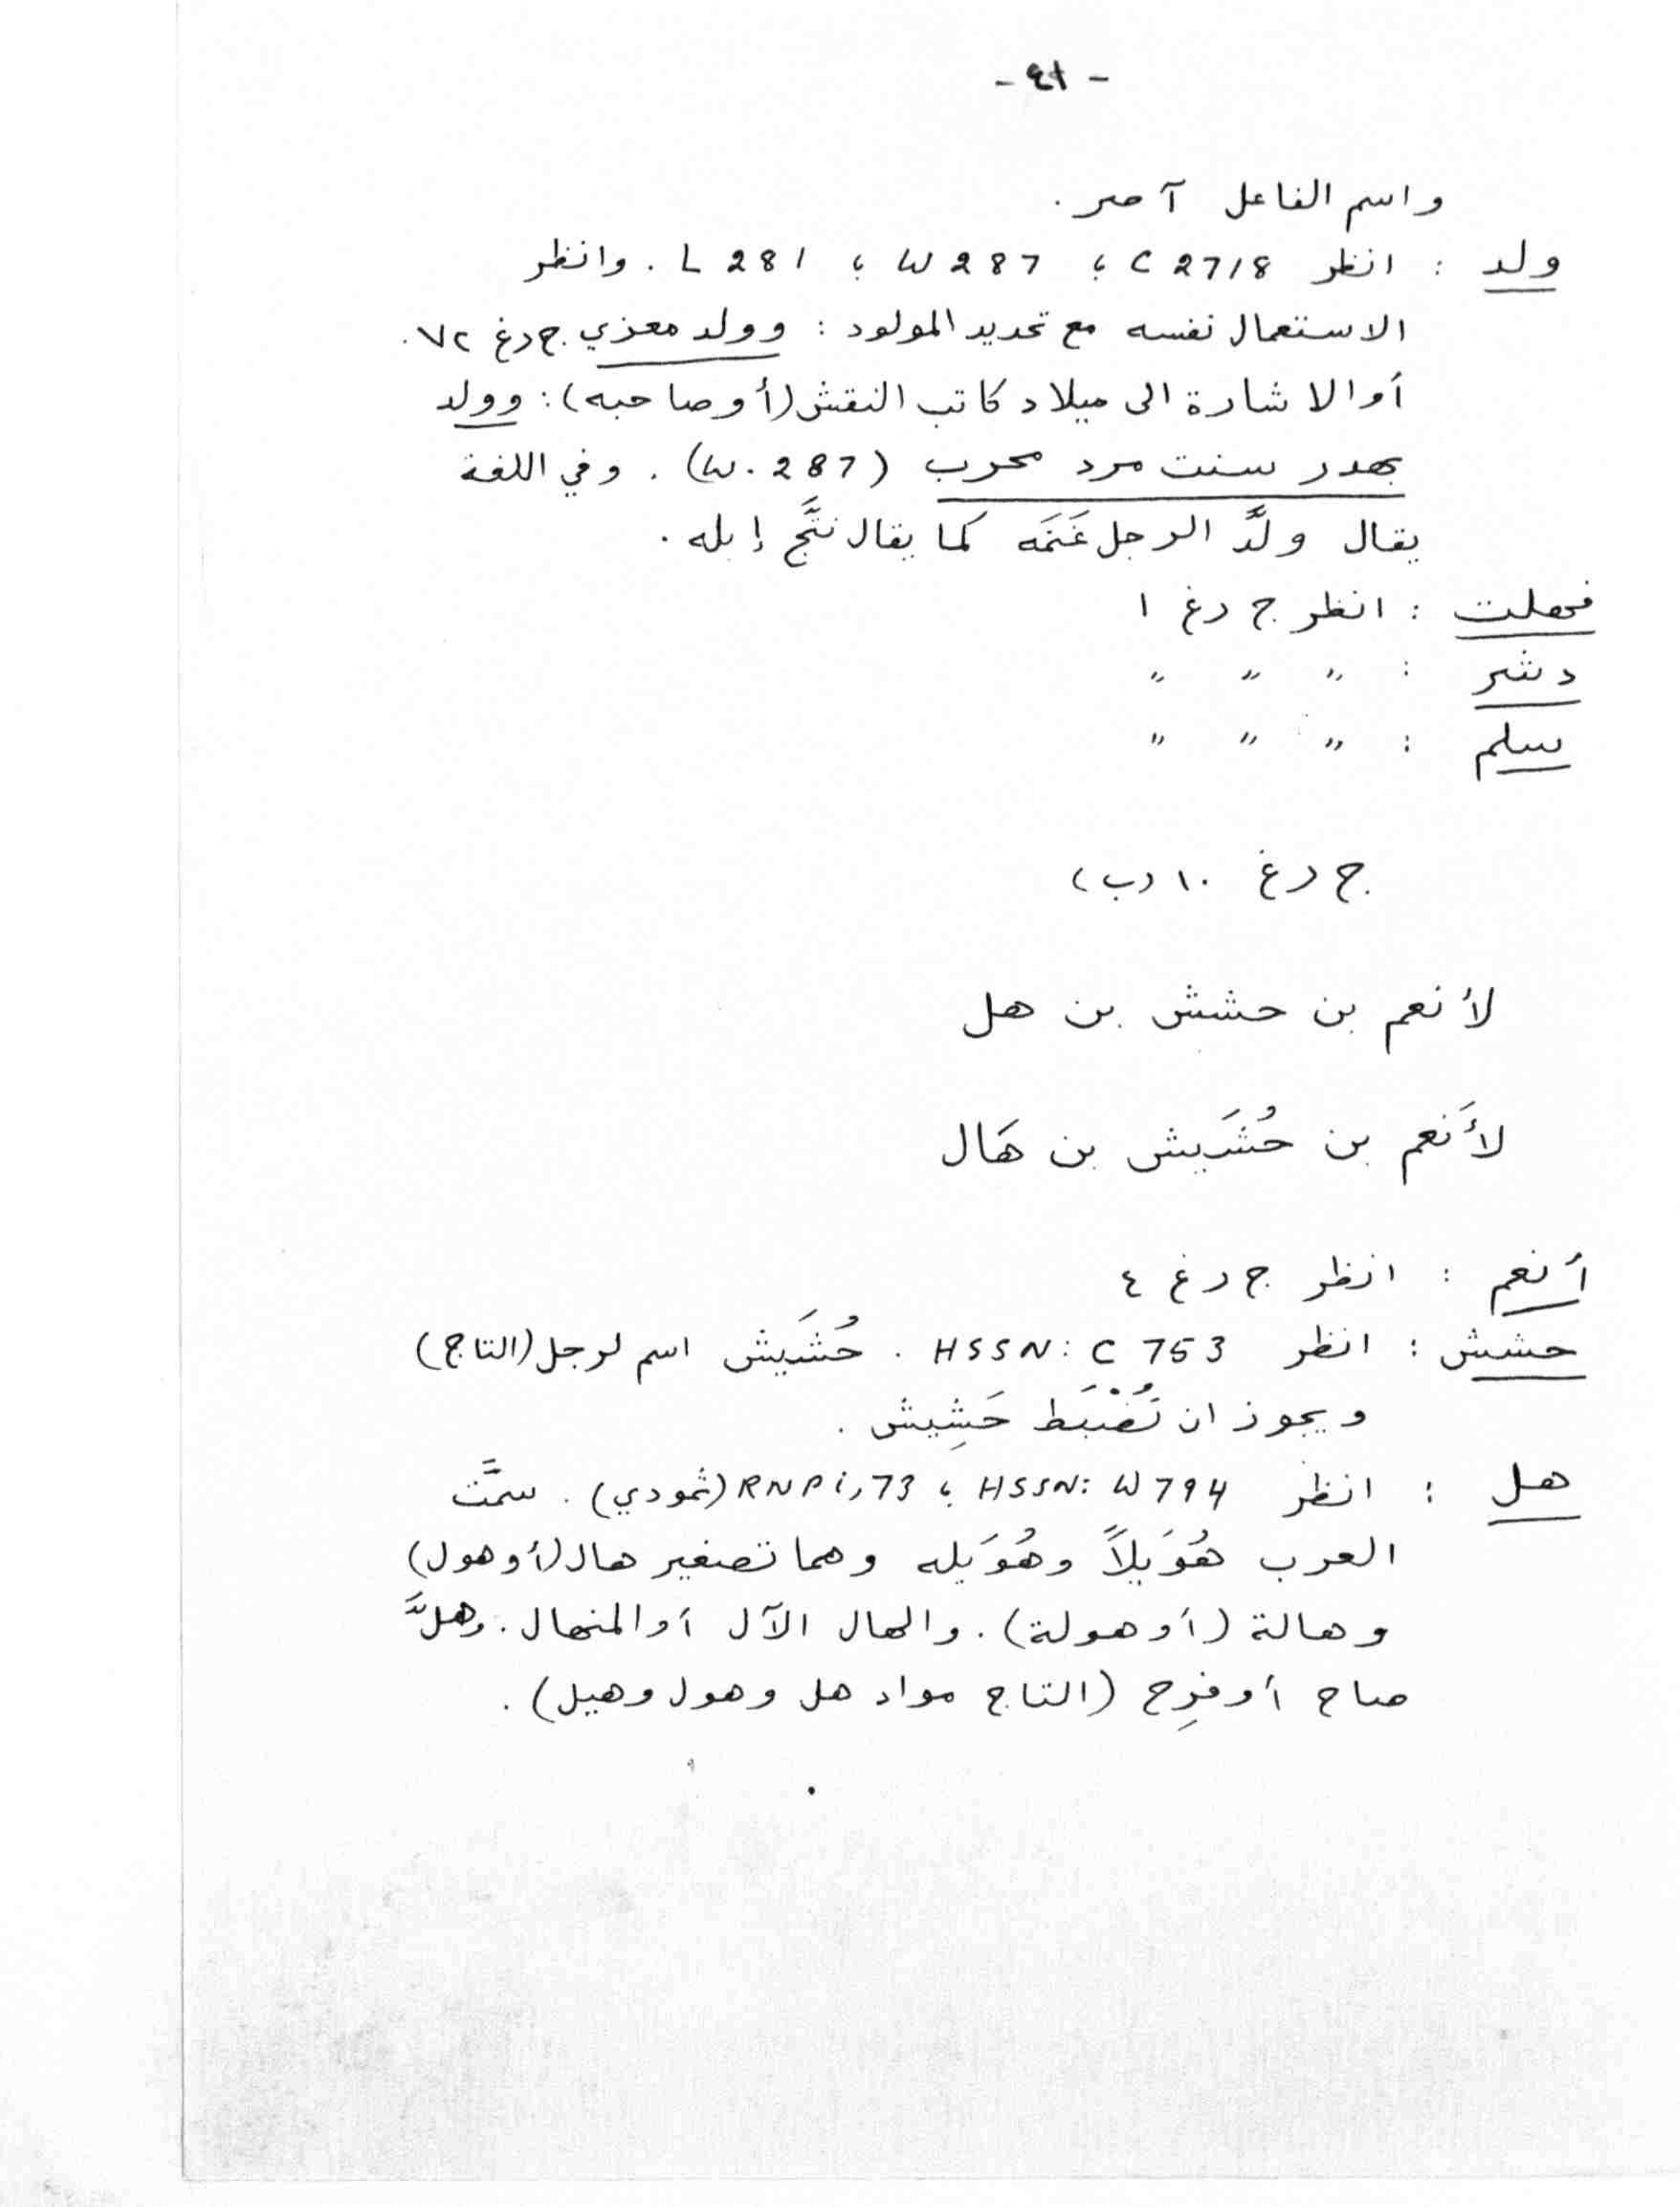 - ٤١ -
واسم الفاعل آصر .
ولد : انظر C 2718 ؛ W 287 ؛ L 281 . وانظر
الاستعمال نفسه مع تحديد المولود : وولد معزي ج رغ ٧٢ .
أو الاشارة الى ميلاد كاتب النقش (أو صاحبه) : وولد
بهدر سنت مرد محرب (W. 287) . وفي اللغة
يقال ولَّد الرجل غَنَمَه كما يقال نتَّج إبله .
فهلت : انظر ج رغ ١
دشر : " " "
سلم : " " "
ج رغ ١٠ (ب)
لأنعم بن حشش بن هل
لأَنعم بن حُشَيش بن هَال
أنعم : انظر ج رغ ٤
حشش : انظر HSSN: C 753 . حُشَيش اسم لرجل (التاج)
ويجوز ان تُضْبَط حَشِيش .
هل : انظر HSSN: W 794 ؛ RNP i, 73 (ثمودي) . سمَّت
العرب هُوَيلاً وهُوَيله وهما تصغير هال (أو هول)
وهالة (أو هولة) . والهال الآل أو المنهال . وهلَّ
صاح أو فرِح (التاج مواد هل وهول وهيل) .